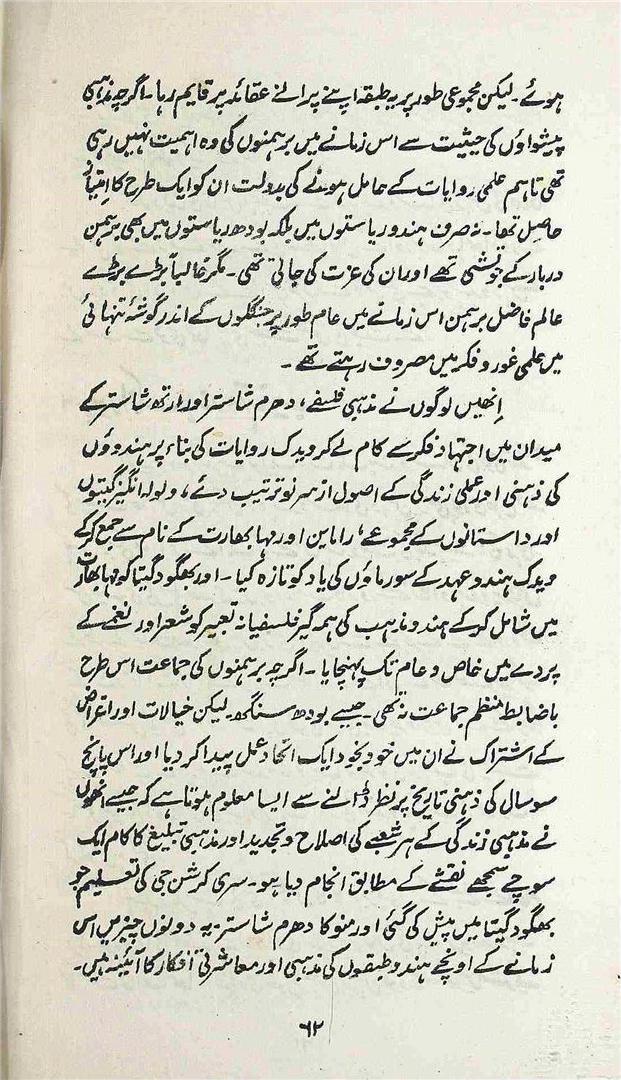 ہوئے۔ لیکن مجموعی طور پر یہ طبقہ اپنے پرانے عقائد پر قایم رہا۔ اگرچہ مذہبی
پیشواؤں کی حیثیت سے اس زمانے میں برہمنوں کی وہ اہمیت نہیں رہی
تھی تاہم علمی روایات کے حامل ہونے کی بدولت ان کو ایک طرح کا امتیاز
حاصل تھا۔ نہ صرف ہندو ریاستوں میں بلکہ بودھ ریاستوں میں بھی برہمن
دربار کے جوتشی تھے اور ان کی عزت کی جاتی تھی۔ مگر غالباً بڑے بڑے
عالم فاضل برہمن اس زمانے میں عام طور پر جنگلوں کے اندر گوشۂ تنہائی
میں علمی غور و فکر میں مصروف رہتے تھے۔
اِنھیں لوگوں نے مذہبی فلسفے، دھرم شاستر اور ارتھ شاستر کے
میدان میں اجتہاد فکر سے کام لے کر ویدک روایات کی بناء پر ہندوؤں
کی ذہنی اور عملی زندگی کے اصول از سر نو ترتیب دئے، ولولہ انگیز گیتوں
اور داستانوں کے مجموعے، راماین اور مہا بھارت کے نام سے جمع کر کے
ویدک ہندو عہد کے سورماؤں کی یاد کو تازہ کیا۔ اور بھگود گیتا کو مہا بھارت
میں شامل کر کے ہندو مذہب کی ہمہ گیر فلسفیانہ تعبیر کو شعر اور نغمے کے
پردے میں خاص و عام تک پہنچایا۔ اگرچہ برہمنوں کی جماعت اس طرح
باضابطہ منظم جماعت نہ تھی۔ جیسے بودھ سنگھ۔ لیکن خیالات اور اغراض
کے اشتراک نے ان میں خود بخود ایک اتحاد عمل پیدا کر دیا اور اس پانچ
سو سال کی ذہنی تاریخ پر نظر ڈالنے سے ایسا معلوم ہوتا ہے کہ جیسے انھوں
نے مذہبی زندگی کے ہر شعبے کی اصلاح و تجدید اور مذہبی تبلیغ کا کام ایک
سوچے سمجھے نقشے کے مطابق انجام دیا ہو۔ سری کرشن جی کی تعلیم جو
بھگود گیتا میں پیش کی گئی اور منو کا دھرم شاستر۔ یہ دونوں چیزیں اس
زمانے کے اونچے ہندو طبقوں کی مذہبی اور معاشرتی افکار کا آئینہ ہیں۔
۶۲